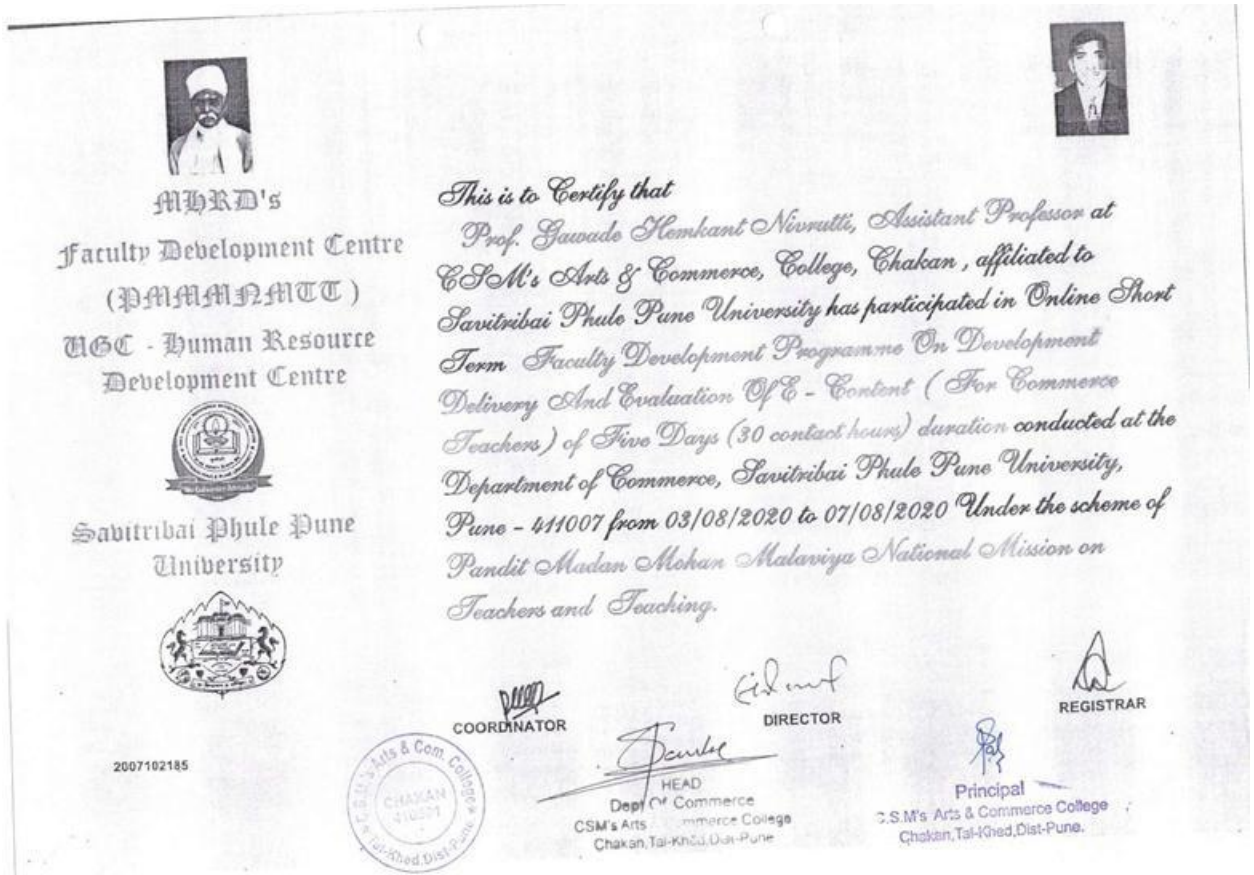 MHRD's
Faculty Development Centre
(PMMMNMTT)
UGC - Human Resource
Development Centre
Savitribai Phule Pune
University
2007102185
This is to Certify that
Prof. Gawade Hemkant Nivrutti, Assistant Professor at
CSM's Arts & Commerce, College, Chakan , affiliated to
Savitribai Phule Pune University has participated in Online Short
Term Faculty Development Programme On Development
Delivery And Evaluation Of E - Content ( For Commerce
Teachers ) of Five Days (30 contact hours) duration conducted at the
Department of Commerce, Savitribai Phule Pune University,
Pune - 411007 from 03/08/2020 to 07/08/2020 Under the scheme of
Pandit Madan Mohan Malaviya National Mission on
Teachers and Teaching.
COORDINATOR
DIRECTOR
REGISTRAR
C.S.M.'s Arts & Com. College
CHAKAN
Tal-Khed.Dist-Pune
HEAD
Dept Of Commerce
CSM's Arts Commerce College
Chakan,Tal-Khed.Dist-Pune
Principal
C.S.M's Arts & Commerce College
Chakan,Tal-Khed,Dist-Pune.